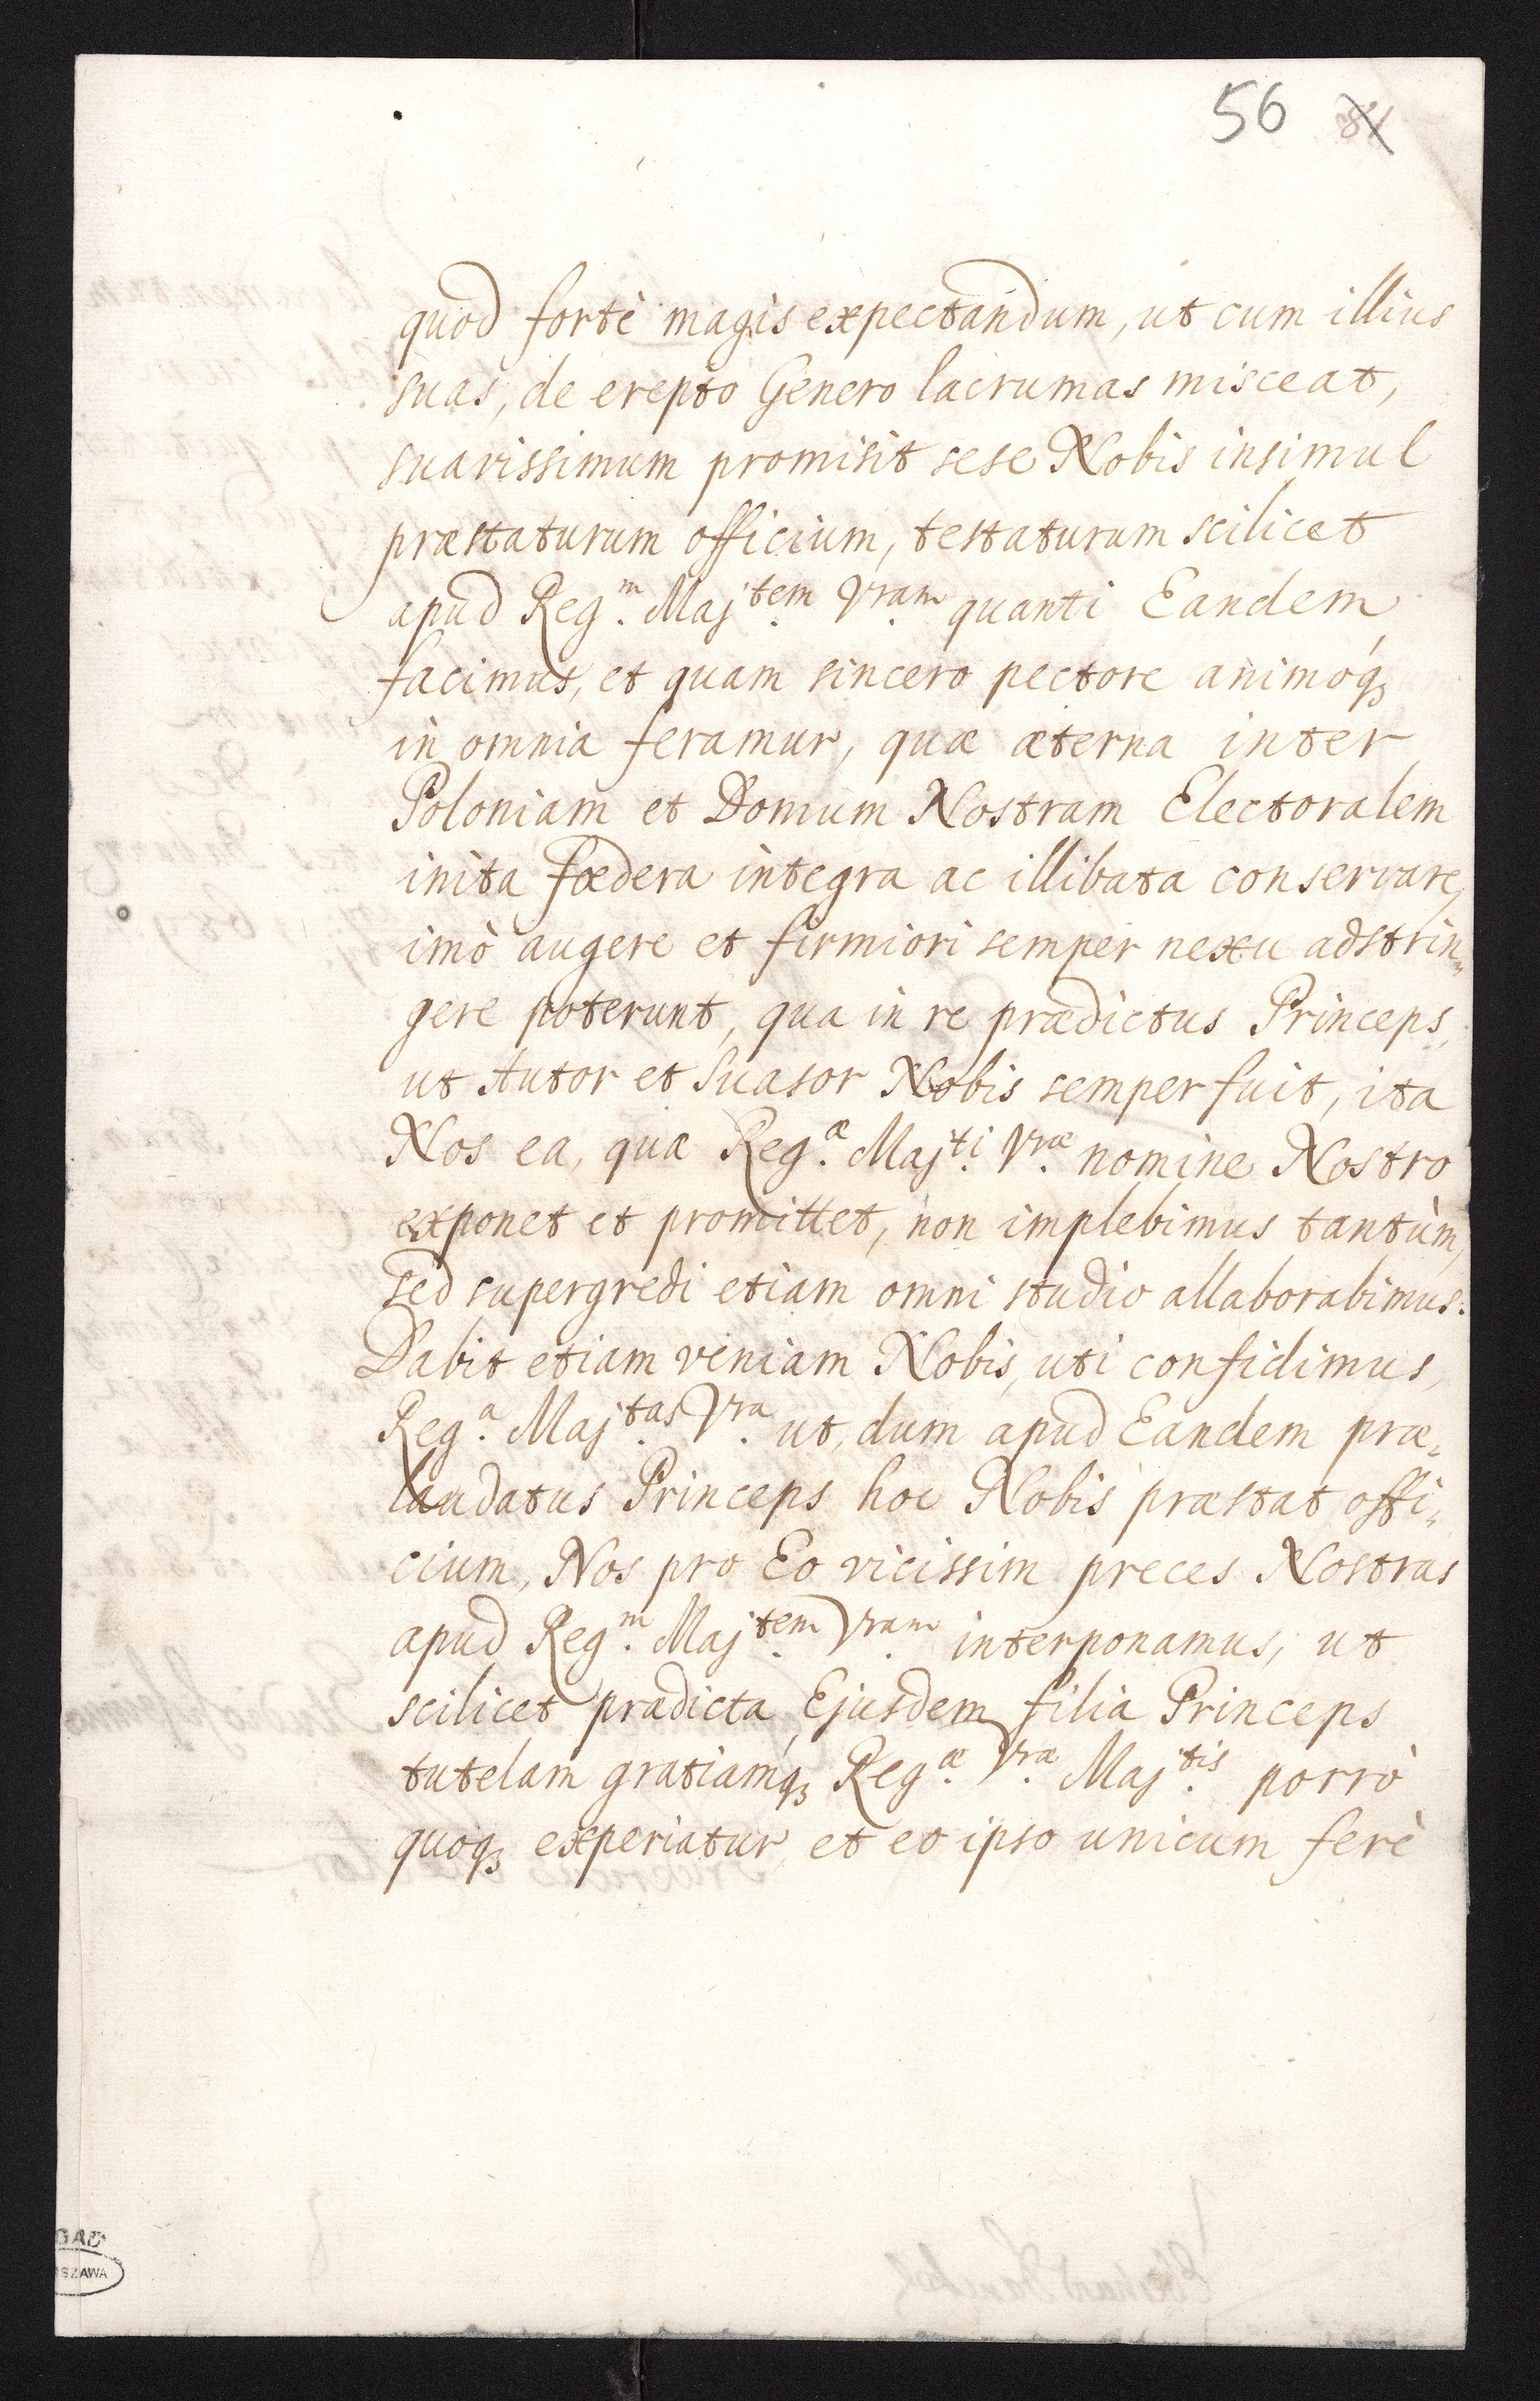 56 81
quod fortè magis expectandum, ut cum illius
suas, de erepto Genero lacrumas misceat,
suavissimum promisit sese Nobis insimul
præstaturum officium, testaturum scilicet
apud Reg.m Maj.tem Vram quanti Eandem
facimus, et quam sincero pectore animóq;
in omnia feramur, quæ æterna inter
Poloniam et Domum Nostram Electoralem
inita fœdera integra ac illibata conservare,
imò augere et firmiori semper nexu adstrin„
gere poterunt, qua in re prædictus Princeps,
ut Autor et Suasor Nobis semper fuit, ita
Nos ea, quæ Reg.æ Maj.ti Vræ nomine Nostro
exponet et promittet, non implebimus tantùm,
sed supergredi etiam omni studio allaborabimus.
Dabit etiam veniam Nobis, uti confidimus,
Reg.a Maj.tas Vra ut, dum apud Eandem præ„
laudatus Princeps hoc Nobis præstat offi„
cium, Nos pro Eo vicissim preces Nostras
apud Reg.m Maj.tem Vram interponamus, ut
scilicet prædicta Ejusdem filia Princeps
tutelam gratiamq; Reg.æ Vræ Maj.tis porrò
quoq; experiatur, et eo ipso unicum ferè
GAD
SZAWA